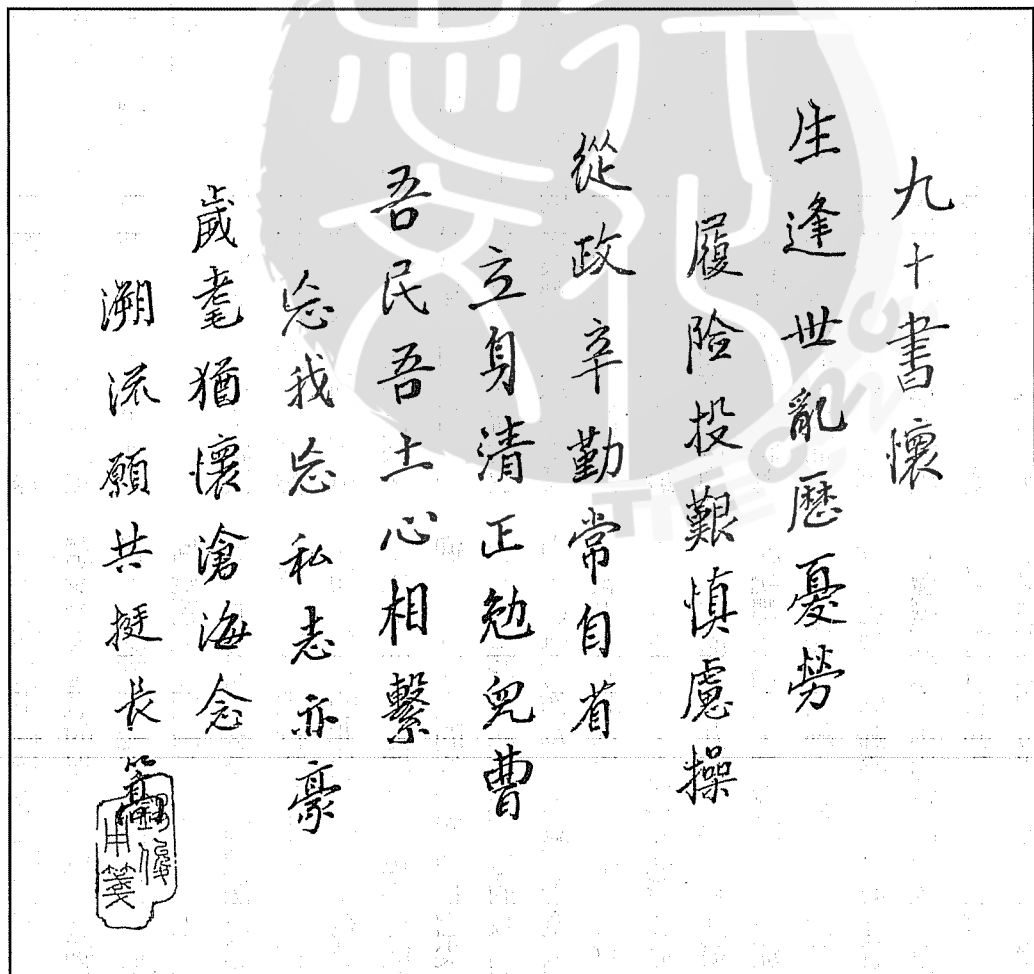 九十書懷
生逢世亂歷憂勞
履險投艱慎慮操
從政辛勤常自省
立身清正勉兒曹
吾民吾土心相繫
忘我忘私志亦豪
歲耄猶懷滄海念
溯流願共挺長篙
用箋
TECRO